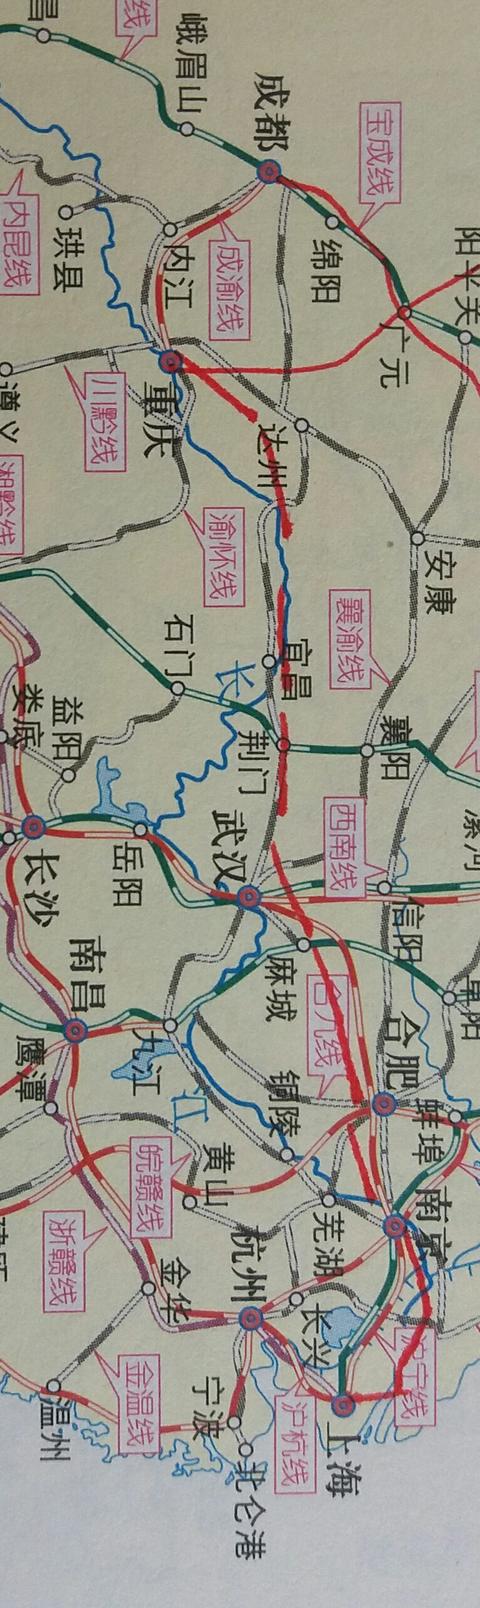 昌
线
峨眉山
成都
宝成线
绵阳
广元
阳平关
内江
成渝线
珙县
内昆线
重庆
川黔线
遵义
达州
安康
渝怀线
湘黔线
襄渝线
石门
宜昌
长
荆门
襄阳
益阳
娄底
岳阳
武汉
西南线
信阳
漯河
长沙
南昌
麻城
合九线
合肥
阜阳
九江
鹰潭
铜陵
蚌埠
江
黄山
皖赣线
芜湖
南京
浙赣线
杭州
金华
长兴
沪宁线
金温线
宁波
沪杭线
上海
温州
北仑港